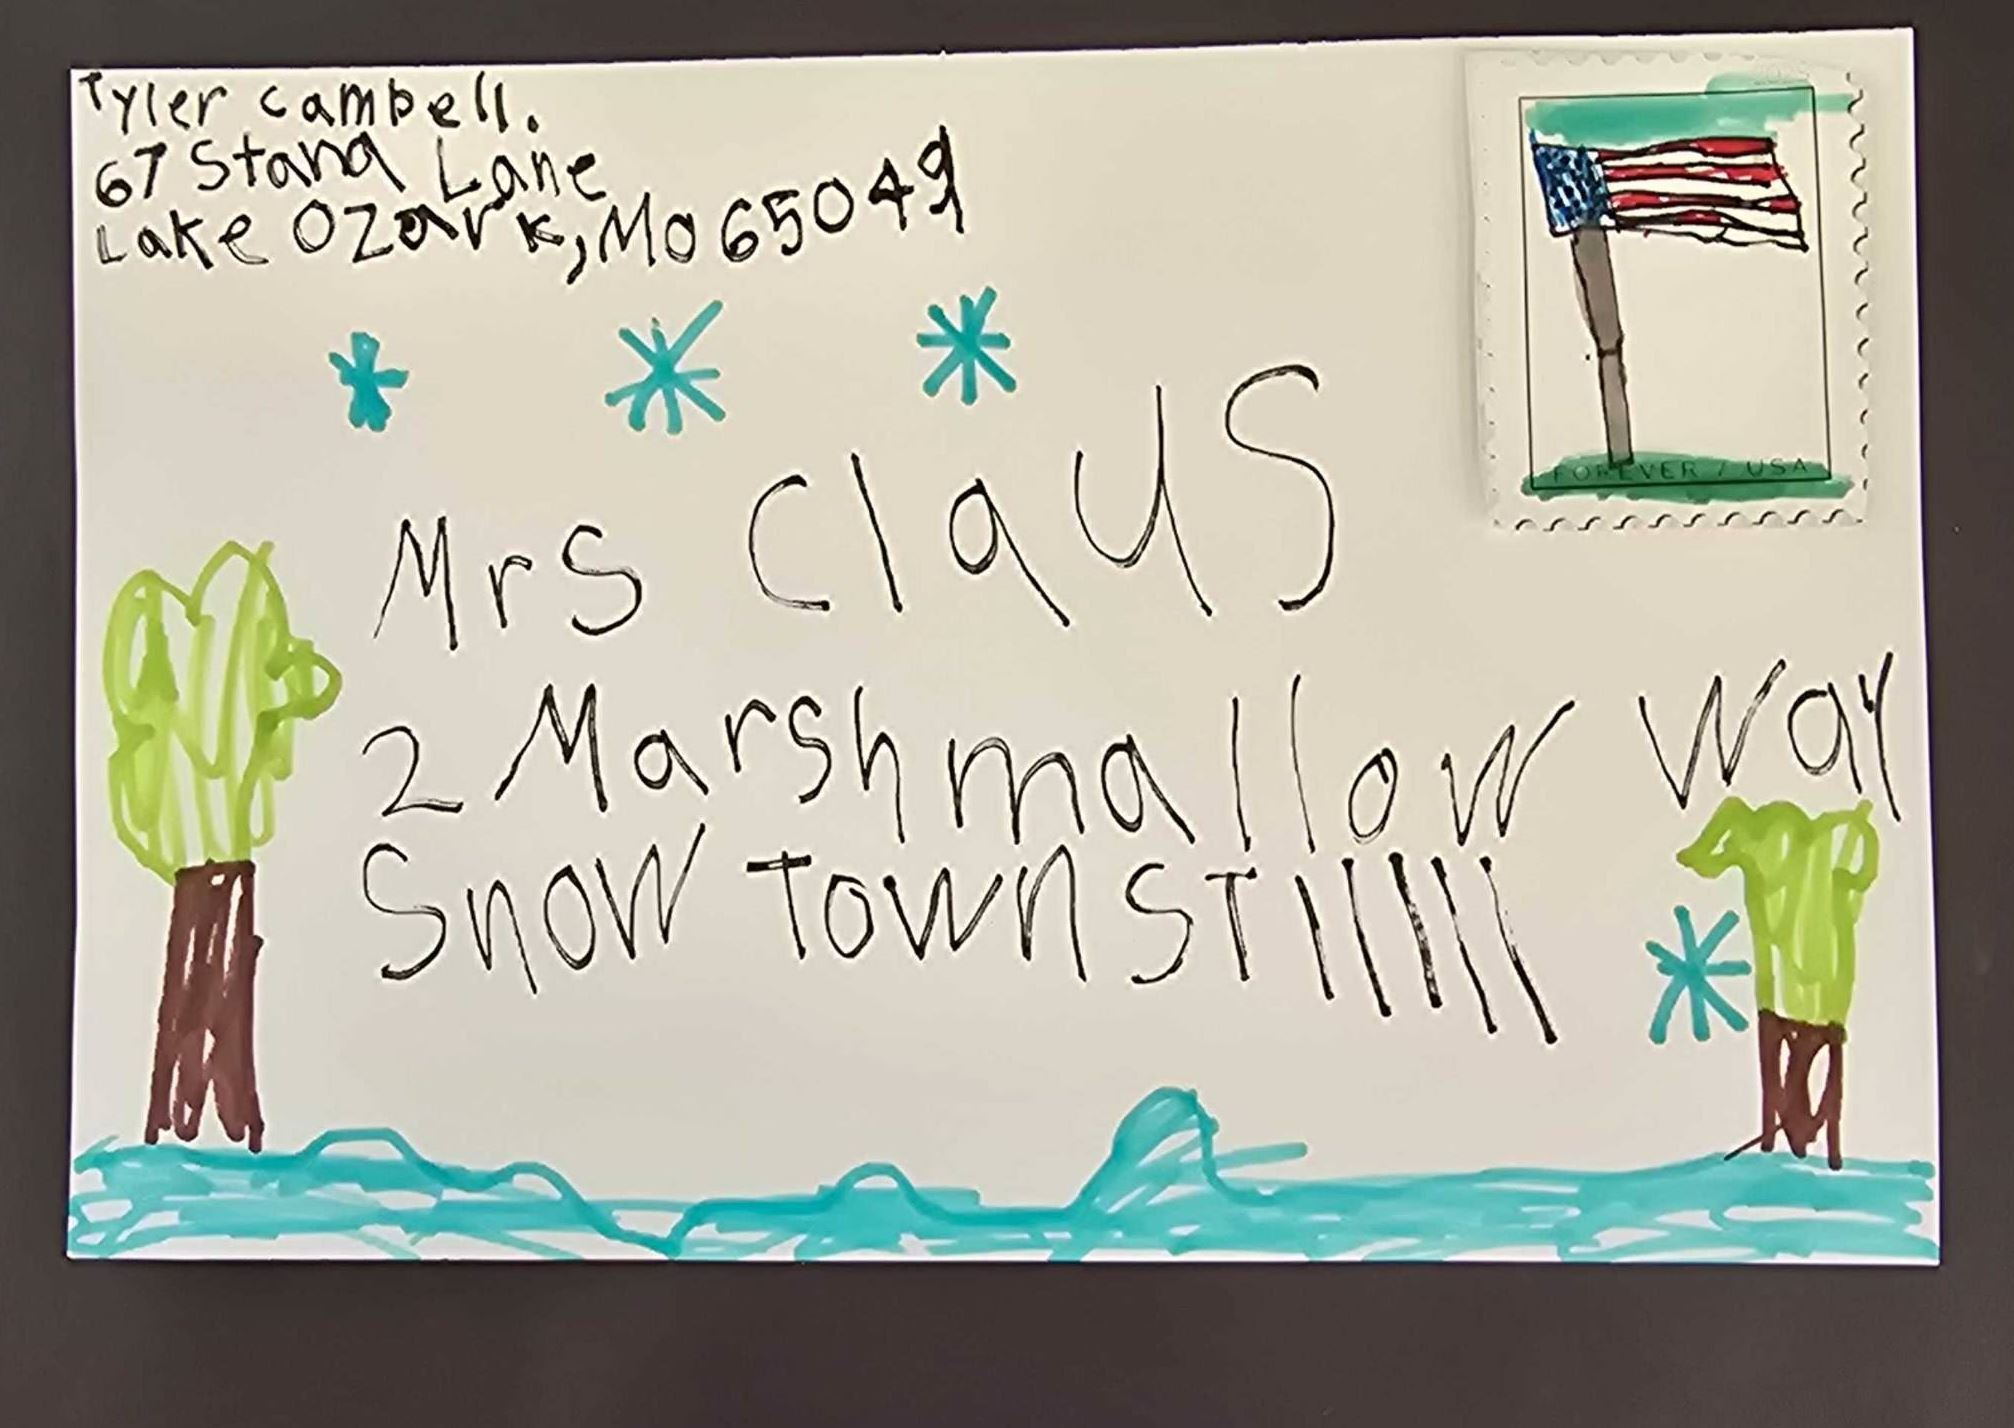 Tyler Campell.
67 Stand Lane
Lake Ozark, Mo 65049
FOREVER / USA
Mrs Claus
2 Marshmallow Way
Snow Town ST 111111